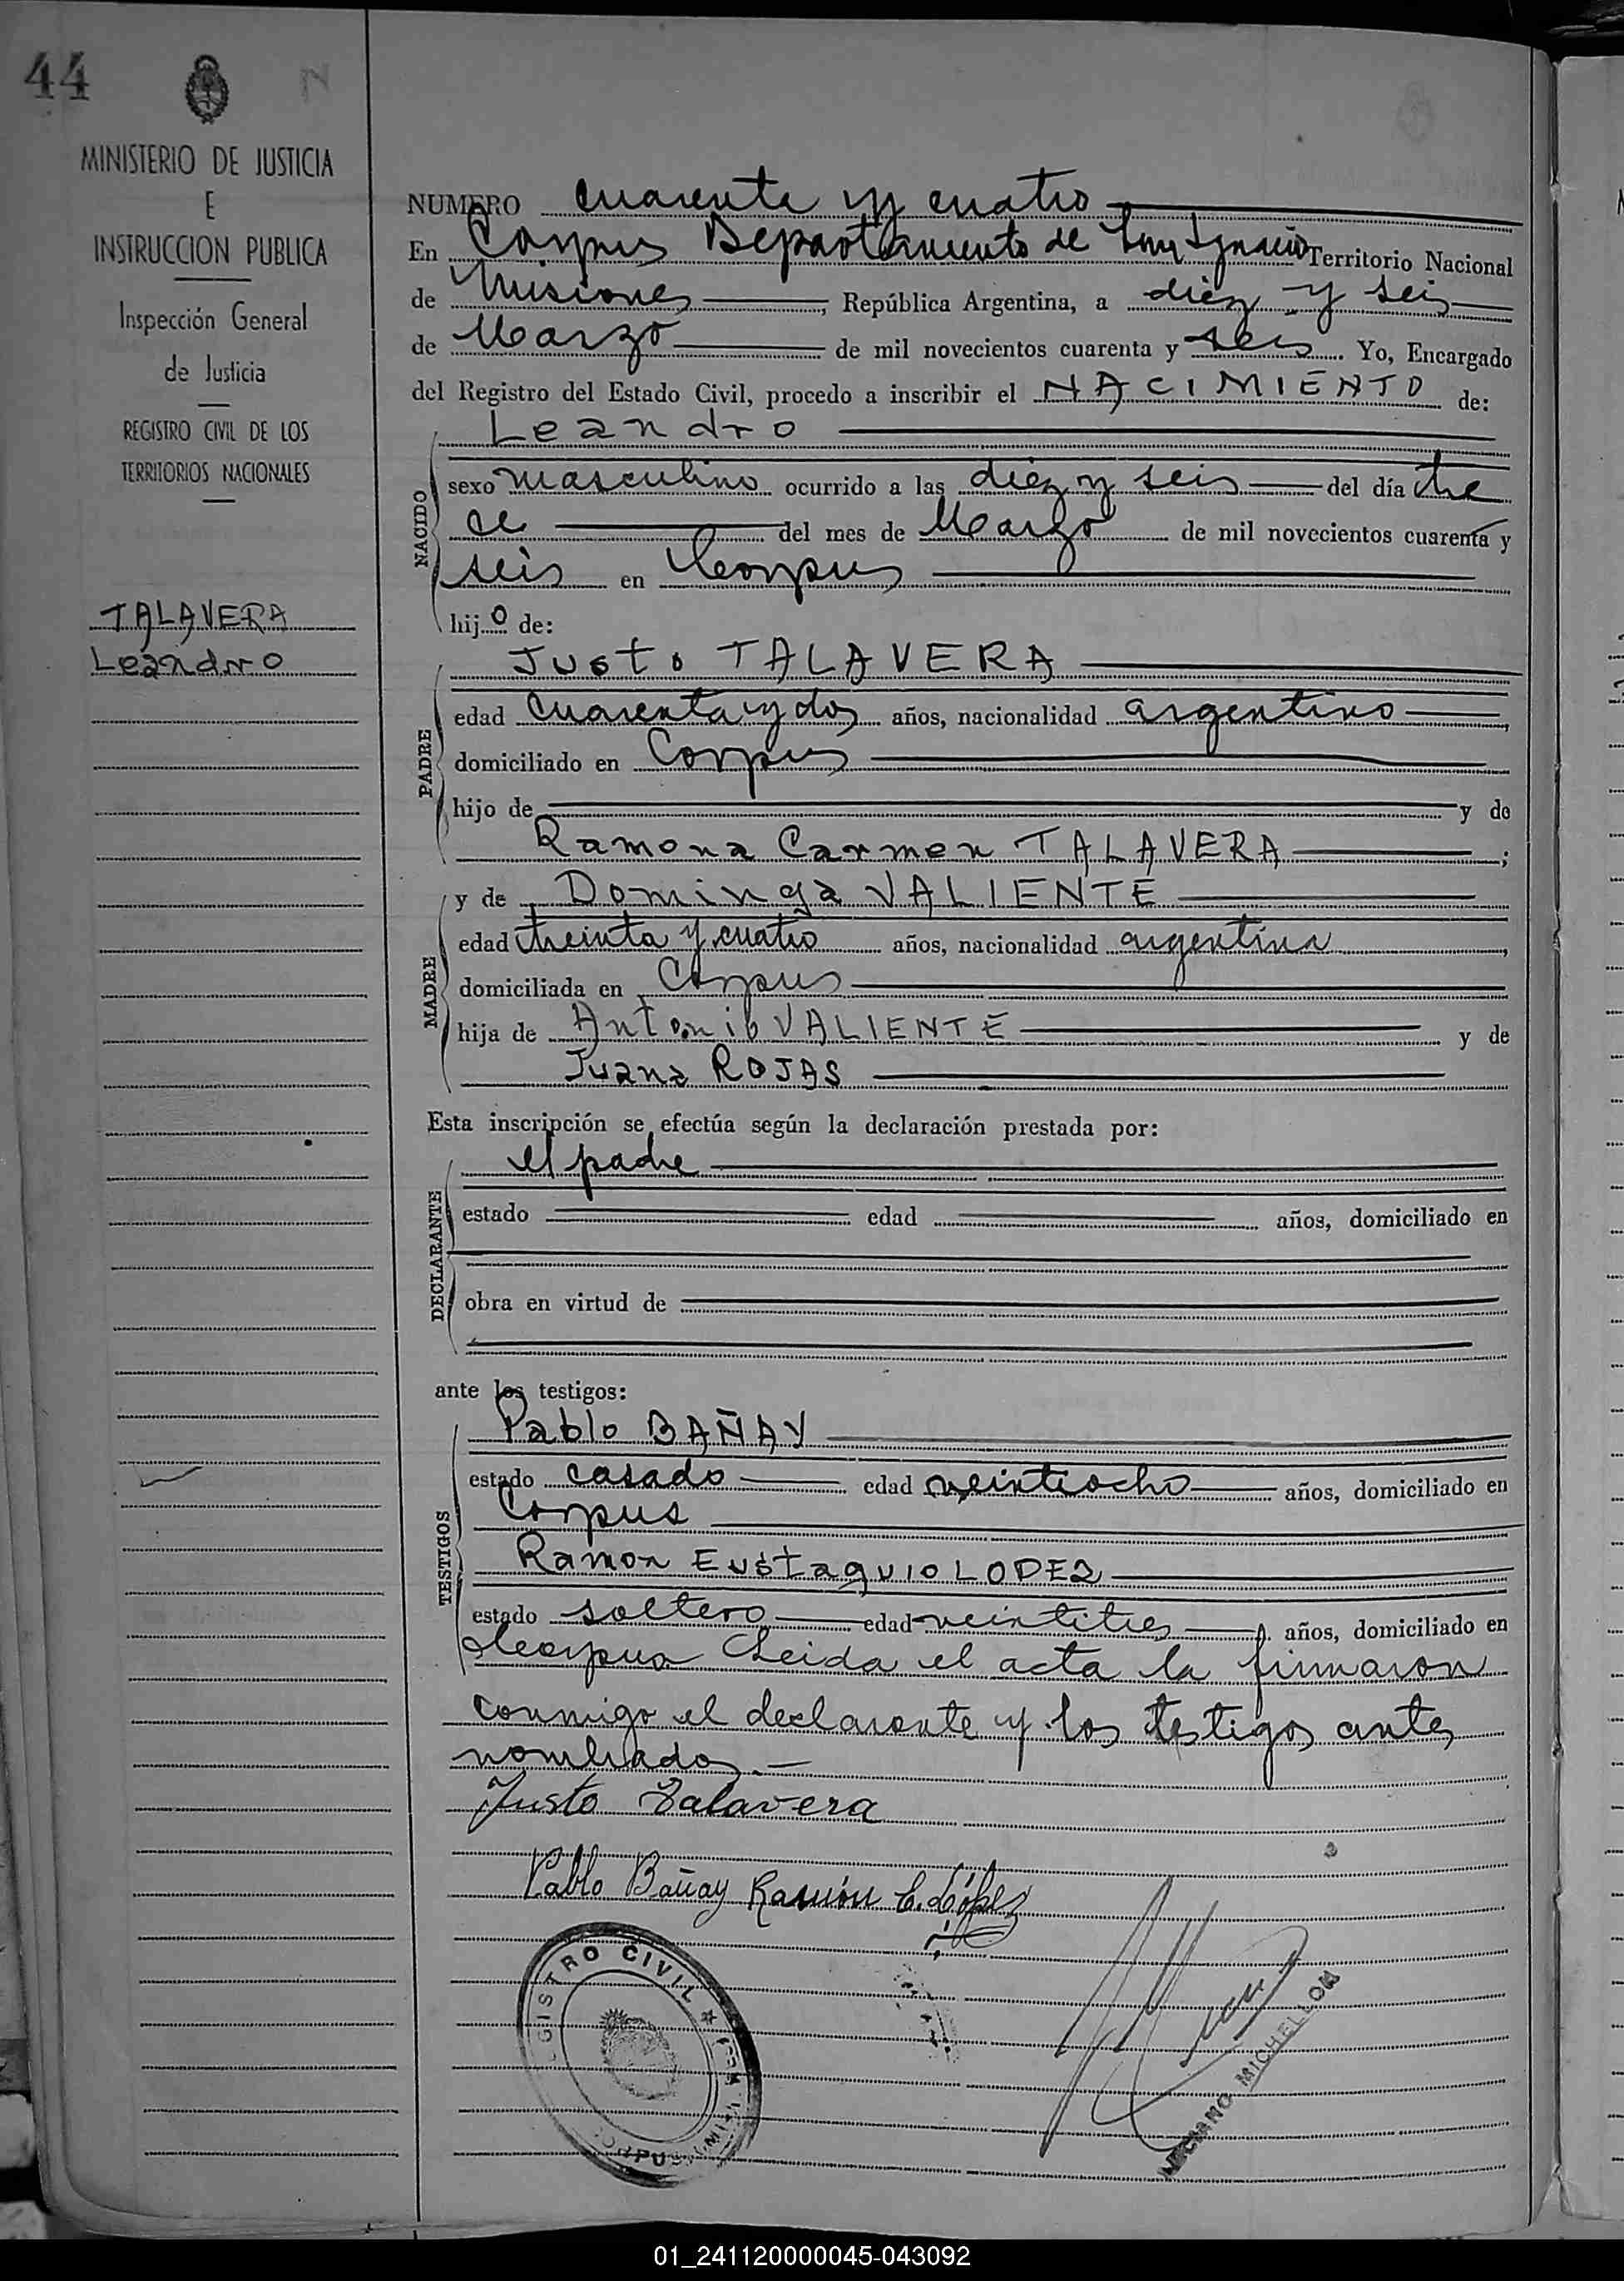 44
MINISTERIO DE JUSTICIA
E
INSTRUCCION PUBLICA
Inspección General
de Justicia
REGISTRO CIVIL DE LOS
TERRITORIOS NACIONALES
TALAVERA
Leandro
NUMERO cuarenta y cuatro
En Corpus Departamento de San Ignacio Territorio Nacional
de Misiones, República Argentina, a diez y seis
de Marzo de mil novecientos cuarenta y seis. Yo, Encargado
del Registro del Estado Civil, procedo a inscribir el NACIMIENTO de:
Leandro
NACIDO
sexo masculino ocurrido a las diez y seis del día tre
ce del mes de Marzo de mil novecientos cuarenta y
seis en Corpus
hijo de:
Justo TALAVERA
PADRE
edad cuarenta y dos años, nacionalidad argentino,
domiciliado en Corpus
hijo de y de
Ramona Carmen TALAVERA;
y de Dominga VALIENTE
MADRE
edad treinta y cuatro años, nacionalidad argentina,
domiciliada en Corpus
hija de Antonio VALIENTE y de
Juana ROJAS
Esta inscripción se efectúa según la declaración prestada por:
el padre
DECLARANTE
estado edad años, domiciliado en
obra en virtud de
ante los testigos:
Pablo BAÑAY
TESTIGOS
estado casado edad veintiocho años, domiciliado en
Corpus
Ramon Eustaquio LOPEZ
estado soltero edad veintitres años, domiciliado en
Corpus Leida el acta la firmaron
conmigo el declarante y los testigos antes
nombrados.—
Justo Talavera
Pablo Bañay Ramón E. López
REGISTRO CIVIL
CORPUS
LUCIANO MICHELLON
01_241120000045-043092